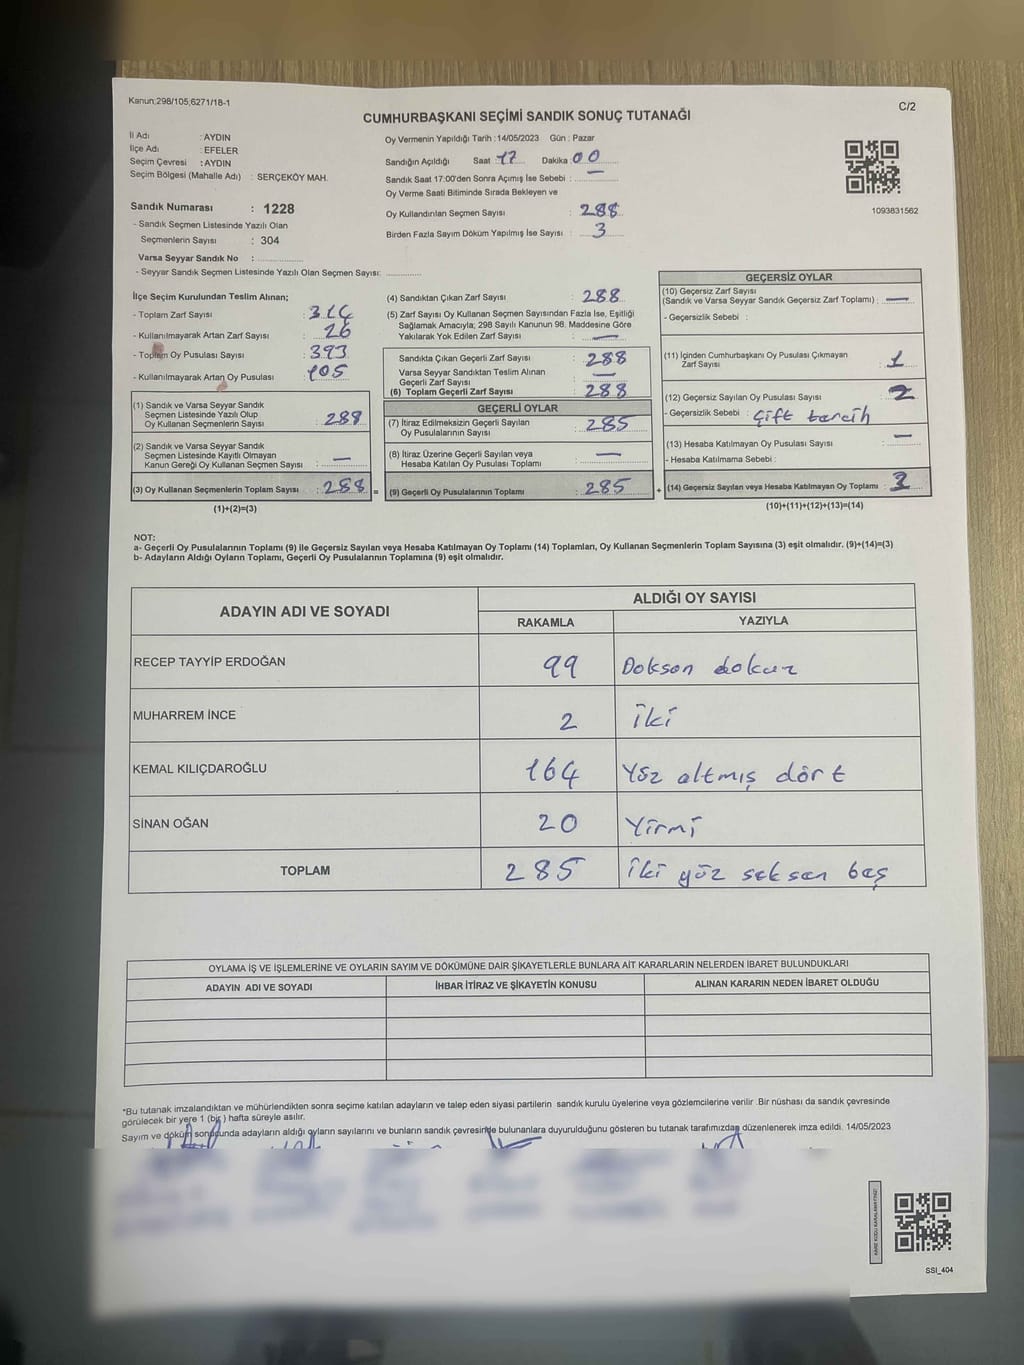 Kanun;298/105;6271/18-1
C/2
CUMHURBAŞKANI SEÇİMİ SANDIK SONUÇ TUTANAĞI
İl Adı : AYDIN
İlçe Adı : EFELER
Seçim Çevresi : AYDIN
Seçim Bölgesi (Mahalle Adı) : SERÇEKÖY MAH.
Sandık Numarası : 1228
- Sandık Seçmen Listesinde Yazılı Olan
Seçmenlerin Sayısı : 304
Varsa Seyyar Sandık No :
- Seyyar Sandık Seçmen Listesinde Yazılı Olan Seçmen Sayısı:
Oy Vermenin Yapıldığı Tarih : 14/05/2023 Gün : Pazar
Sandığın Açıldığı Saat 17 Dakika : 00
Sandık Saat 17:00'den Sonra Açımış İse Sebebi : —
Oy Verme Saati Bitiminde Sırada Bekleyen ve
Oy Kullandırılan Seçmen Sayısı : 288
Birden Fazla Sayım Döküm Yapılmış İse Sayısı : 3
1093831562
İlçe Seçim Kurulundan Teslim Alınan;
- Toplam Zarf Sayısı :
- Kullanılmayarak Artan Zarf Sayısı : 26
- Toplam Oy Pusulası Sayısı : 393
- Kullanılmayarak Artan Oy Pusulası : 105
(1) Sandık ve Varsa Seyyar Sandık
Seçmen Listesinde Yazılı Olup
Oy Kullanan Seçmenlerin Sayısı : 288
(2) Sandık ve Varsa Seyyar Sandık
Seçmen Listesinde Kayıtlı Olmayan
Kanun Gereği Oy Kullanan Seçmen Sayısı : —
(3) Oy Kullanan Seçmenlerin Toplam Sayısı : 288 =
(1)+(2)=(3)
(4) Sandıktan Çıkan Zarf Sayısı : 288
(5) Zarf Sayısı Oy Kullanan Seçmen Sayısından Fazla İse, Eşitliği
Sağlamak Amacıyla; 298 Sayılı Kanunun 98. Maddesine Göre
Yakılarak Yok Edilen Zarf Sayısı : —
Sandıkta Çıkan Geçerli Zarf Sayısı : 288
Varsa Seyyar Sandıktan Teslim Alınan
Geçerli Zarf Sayısı : —
(6) Toplam Geçerli Zarf Sayısı : 288
GEÇERLİ OYLAR
(7) İtiraz Edilmeksizin Geçerli Sayılan
Oy Pusulalarının Sayısı : 285
(8) İtiraz Üzerine Geçerli Sayılan veya
Hesaba Katılan Oy Pusulası Toplamı : —
(9) Geçerli Oy Pusulalarının Toplamı : 285 +
GEÇERSİZ OYLAR
(10) Geçersiz Zarf Sayısı
(Sandık ve Varsa Seyyar Sandık Geçersiz Zarf Toplamı) : —
- Geçersizlik Sebebi :
(11) İçinden Cumhurbaşkanı Oy Pusulası Çıkmayan
Zarf Sayısı : 1
(12) Geçersiz Sayılan Oy Pusulası Sayısı : 2
- Geçersizlik Sebebi : Çift tercih
(13) Hesaba Katılmayan Oy Pusulası Sayısı : —
- Hesaba Katılmama Sebebi :
(14) Geçersiz Sayılan veya Hesaba Katılmayan Oy Toplamı : 3
(10)+(11)+(12)+(13)=(14)
NOT:
a- Geçerli Oy Pusulalarının Toplamı (9) ile Geçersiz Sayılan veya Hesaba Katılmayan Oy Toplamı (14) Toplamları, Oy Kullanan Seçmenlerin Toplam Sayısına (3) eşit olmalıdır. (9)+(14)=(3)
b- Adayların Aldığı Oyların Toplamı, Geçerli Oy Pusulalarının Toplamına (9) eşit olmalıdır.
ADAYIN ADI VE SOYADI
ALDIĞI OY SAYISI
RAKAMLA YAZIYLA
RECEP TAYYİP ERDOĞAN 99 Dokson dokuz
MUHARREM İNCE 2 iki
KEMAL KILIÇDAROĞLU 164 Yüz altmış dört
SİNAN OĞAN 20 Yirmi
TOPLAM 285 iki yüz seksen beş
OYLAMA İŞ VE İŞLEMLERİNE VE OYLARIN SAYIM VE DÖKÜMÜNE DAİR ŞİKAYETLERLE BUNLARA AİT KARARLARIN NELERDEN İBARET BULUNDUKLARI
ADAYIN ADI VE SOYADI İHBAR İTİRAZ VE ŞİKAYETİN KONUSU ALINAN KARARIN NEDEN İBARET OLDUĞU
*Bu tutanak imzalandıktan ve mühürlendikten sonra seçime katılan adayların ve talep eden siyasi partilerin sandık kurulu üyelerine veya gözlemcilerine verilir .Bir nüshası da sandık çevresinde
görülecek bir yere 1 (bir ) hafta süreyle asılır.
Sayım ve döküm sonucunda adayların aldığı oyların sayılarını ve bunların sandık çevresinde bulunanlara duyurulduğunu gösteren bu tutanak tarafımızdan düzenlenerek imza edildi. 14/05/2023
SSI_404